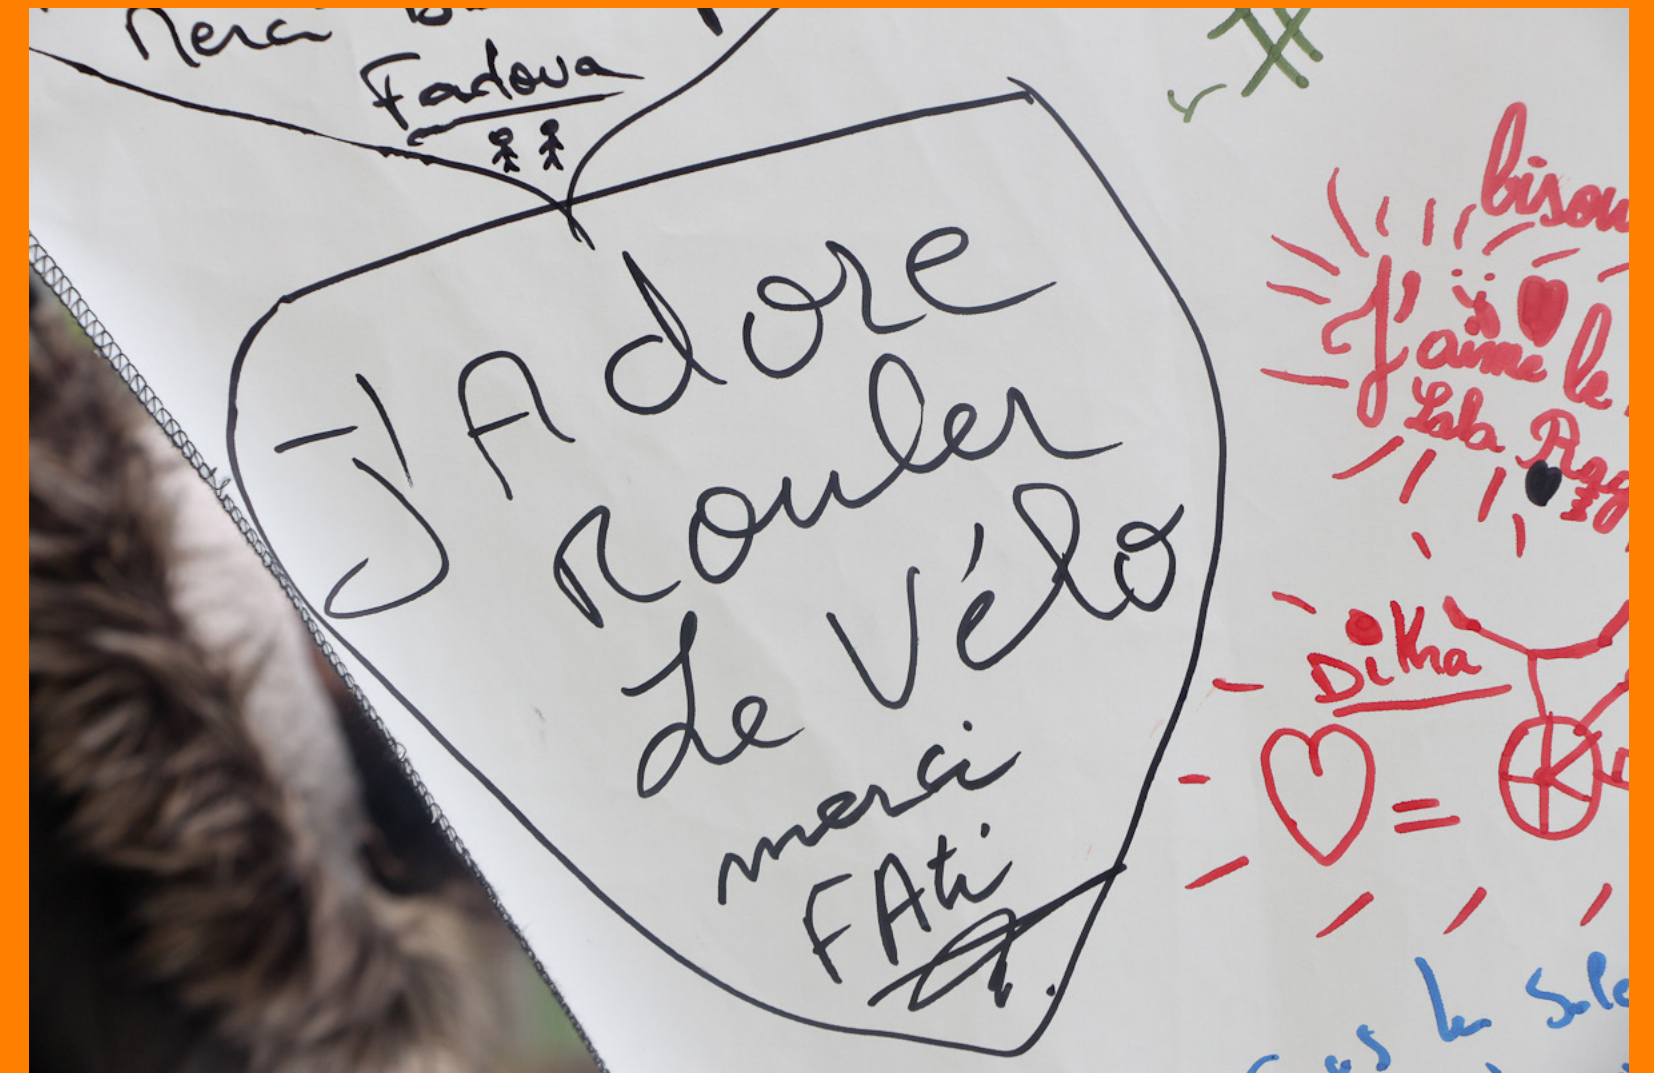 Merci
Fadoua
J'Adore
Rouler
Le Vélo
merci
FAti
bisou
J'aime le
Lola
Ditha
=
les Sole